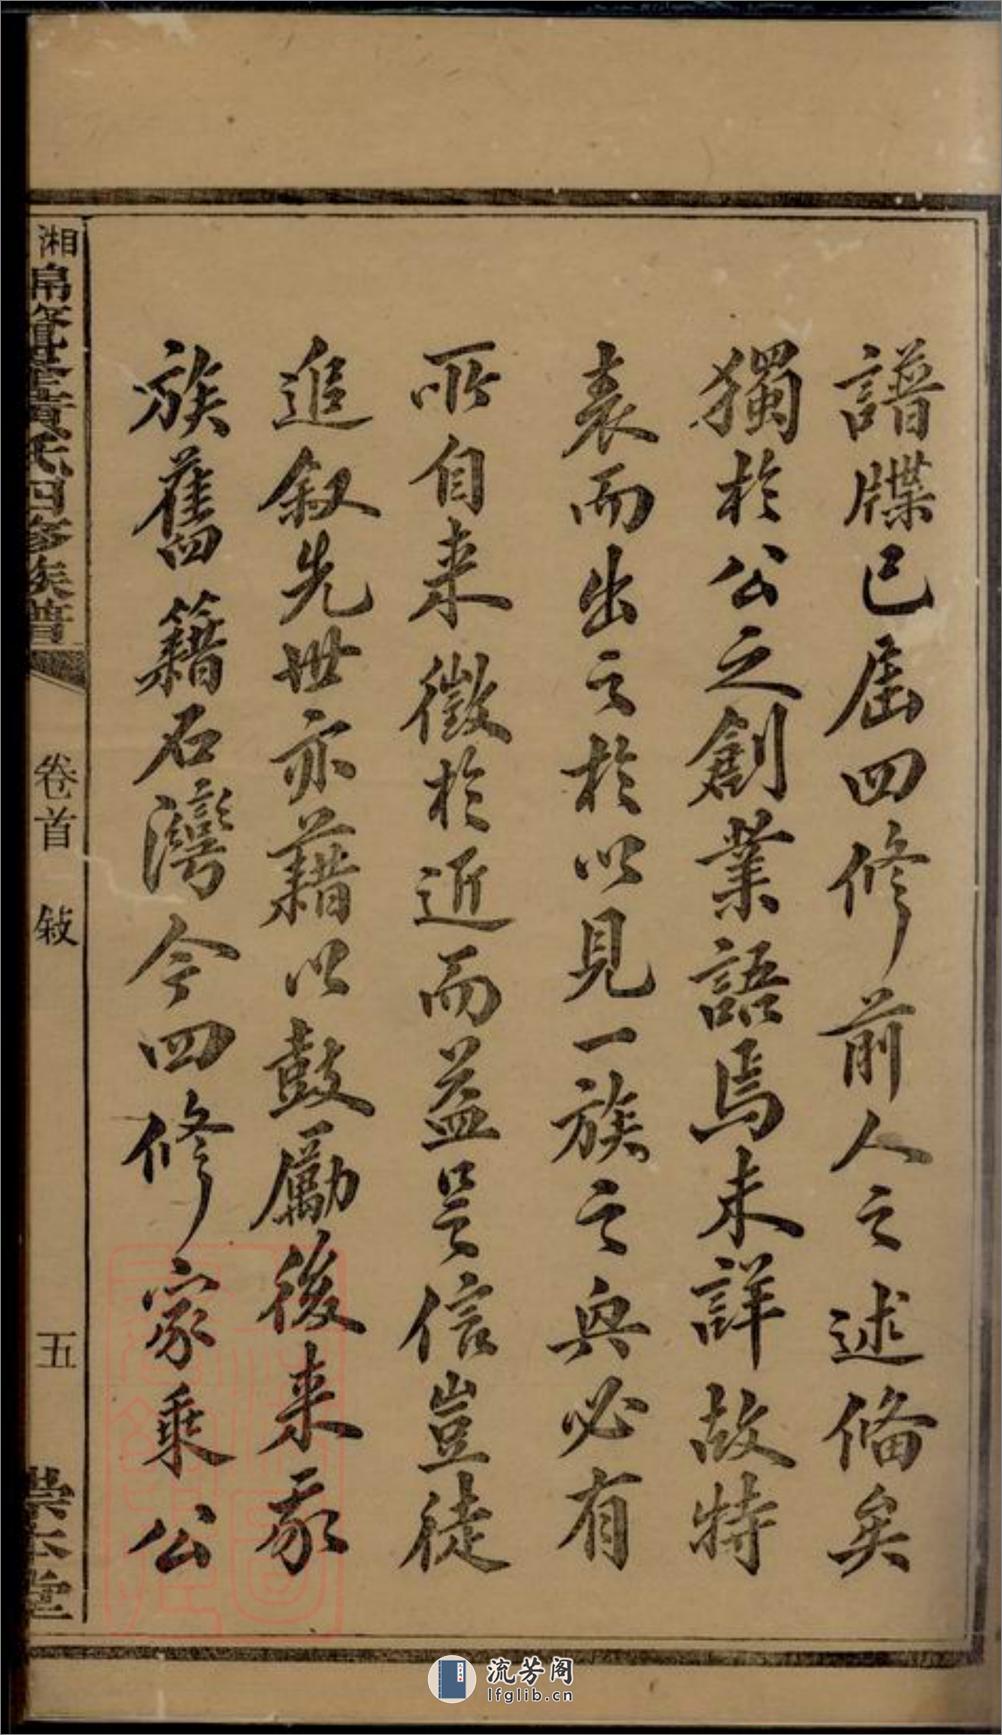 譜牒已屆四修前人之述俻矣
獨於公之創業語焉未詳故特
表而出之於以見一族之興必有
所自来徵於近而益足信豈徒
追叙先世亦藉以鼓勵後来我
族舊籍石灣今四修家乘公
湘黃氏四修族譜
卷首
敍
五
堂
流芳阁
lfglib.cn